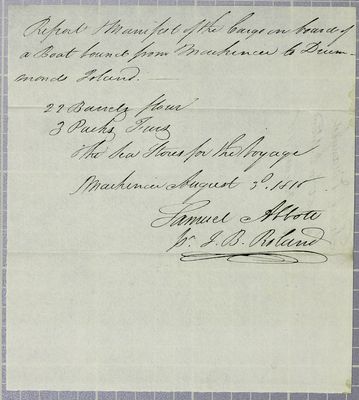 Report & Manifest of the Cargo on board of
a Boat bound from Mackinac to Drum-
monds Island.
22 Barrels flour
3 Packs Furs
The Sea Stores for the Voyage
Mackinac August 3d. 1816
Samuel Abbott
J. B. Roland